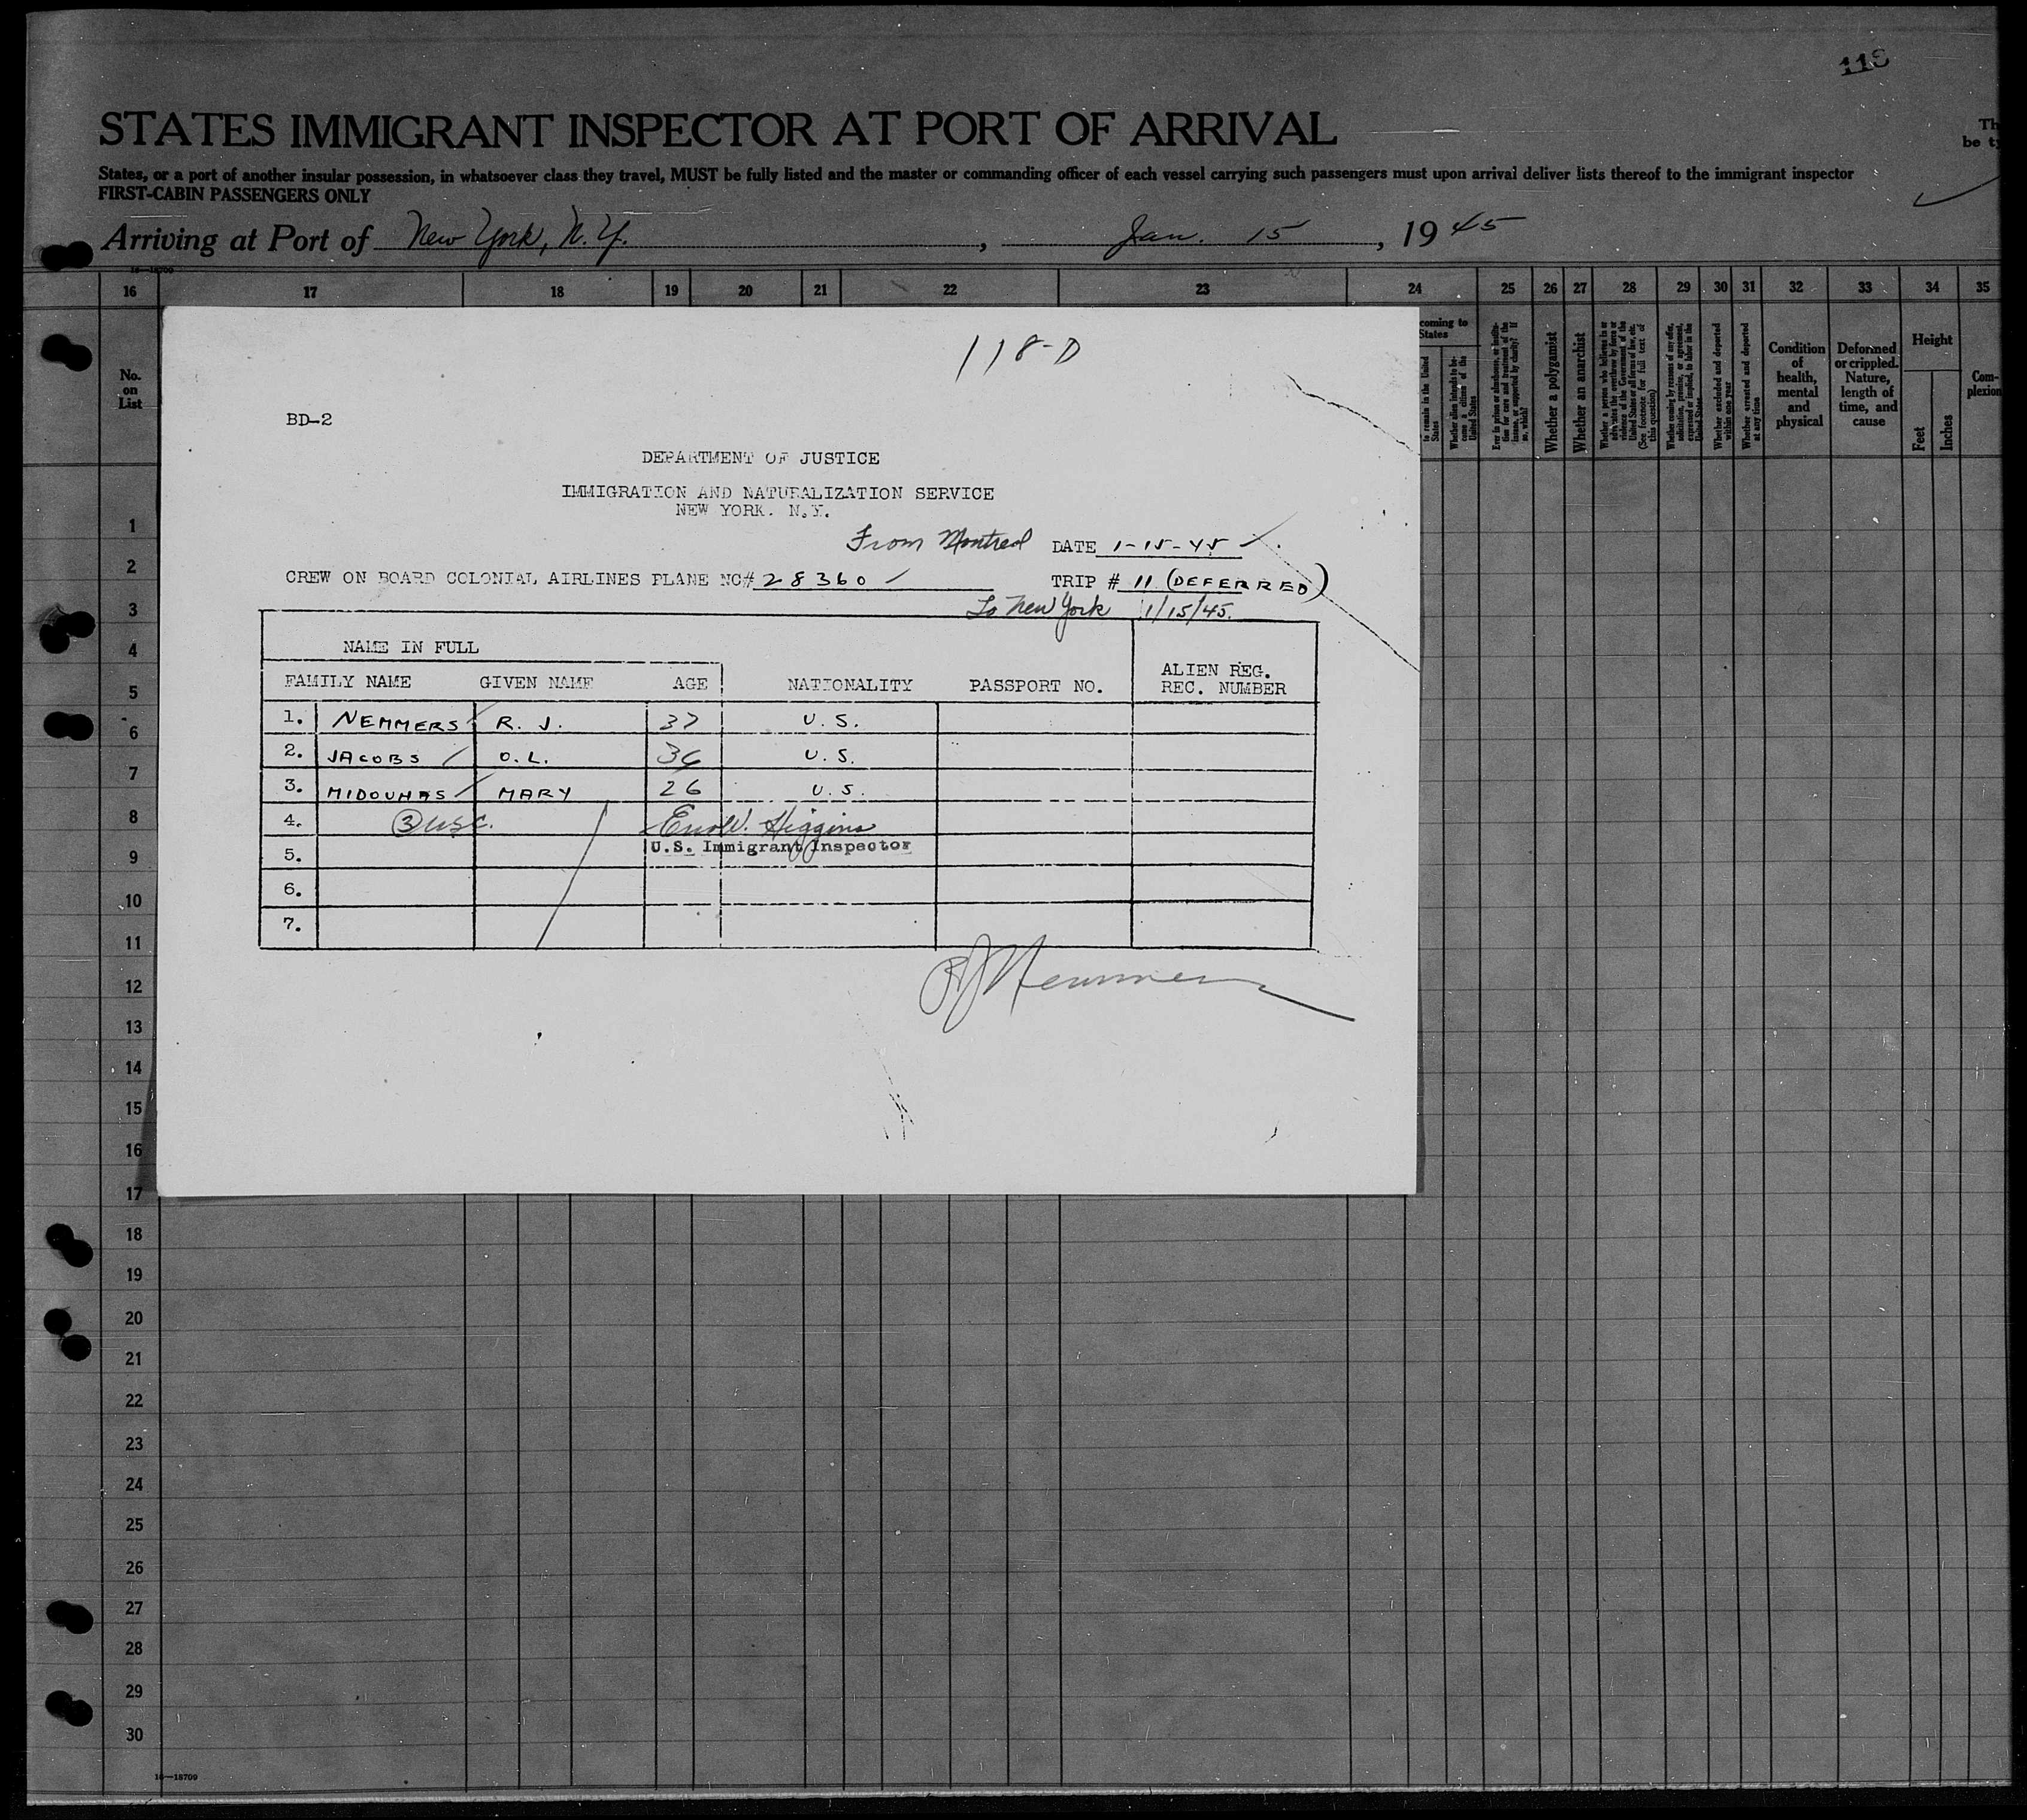 118
STATES IMMIGRANT INSPECTOR AT PORT OF ARRIVAL
Th
be ty
States, or a port of another insular possession, in whatsoever class they travel, MUST be fully listed and the master or commanding officer of each vessel carrying such passengers must upon arrival deliver lists thereof to the immigrant inspector
FIRST-CABIN PASSENGERS ONLY
Arriving at Port of New York, N.Y. , Jan. 15 , 1945
16 17 18 19 20 21 22 23 24 25 26 27 28 29 30 31 32 33 34 35
No. on List
coming to
States
Whether a polygamist
Whether an anarchist
Whether excluded and deported within one year
Whether arrested and deported at any time
Condition of health, mental and physical
Deformed or crippled. Nature, length of time, and cause
Height
Feet
Inches
Com-
plexion
118-D
BD-2
DEPARTMENT OF JUSTICE
IMMIGRATION AND NATURALIZATION SERVICE
NEW YORK. N.Y.
From Montreal DATE 1-15-45
CREW ON BOARD COLONIAL AIRLINES PLANE NC# 28360 TRIP # 11 (DEFERRED)
To New York 1/15/45.
NAME IN FULL
FAMILY NAME GIVEN NAME AGE NATIONALITY PASSPORT NO. ALIEN REG. REC. NUMBER
1. NEMMERS R. J. 37 U.S.
2. JACOBS O.L. 36 U.S.
3. MARY 26 U.S.
4. 3 USC. Higgins
5. U.S. Immigrant Inspector
6.
7.
RJ Nemmers
1
2
3
4
5
6
7
8
9
10
11
12
13
14
15
16
17
18
19
20
21
22
23
24
25
26
27
28
29
30
16—18709